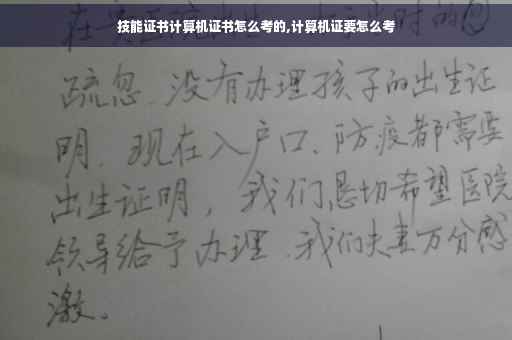 技能证书计算机证书怎么考的,计算机证要怎么考
疏忽、没有办理孩子的出生证
明、现在入户口、防疫都需要
出生证明，我们恳切希望医院
领导给予办理、我们夫妻万分感
激。